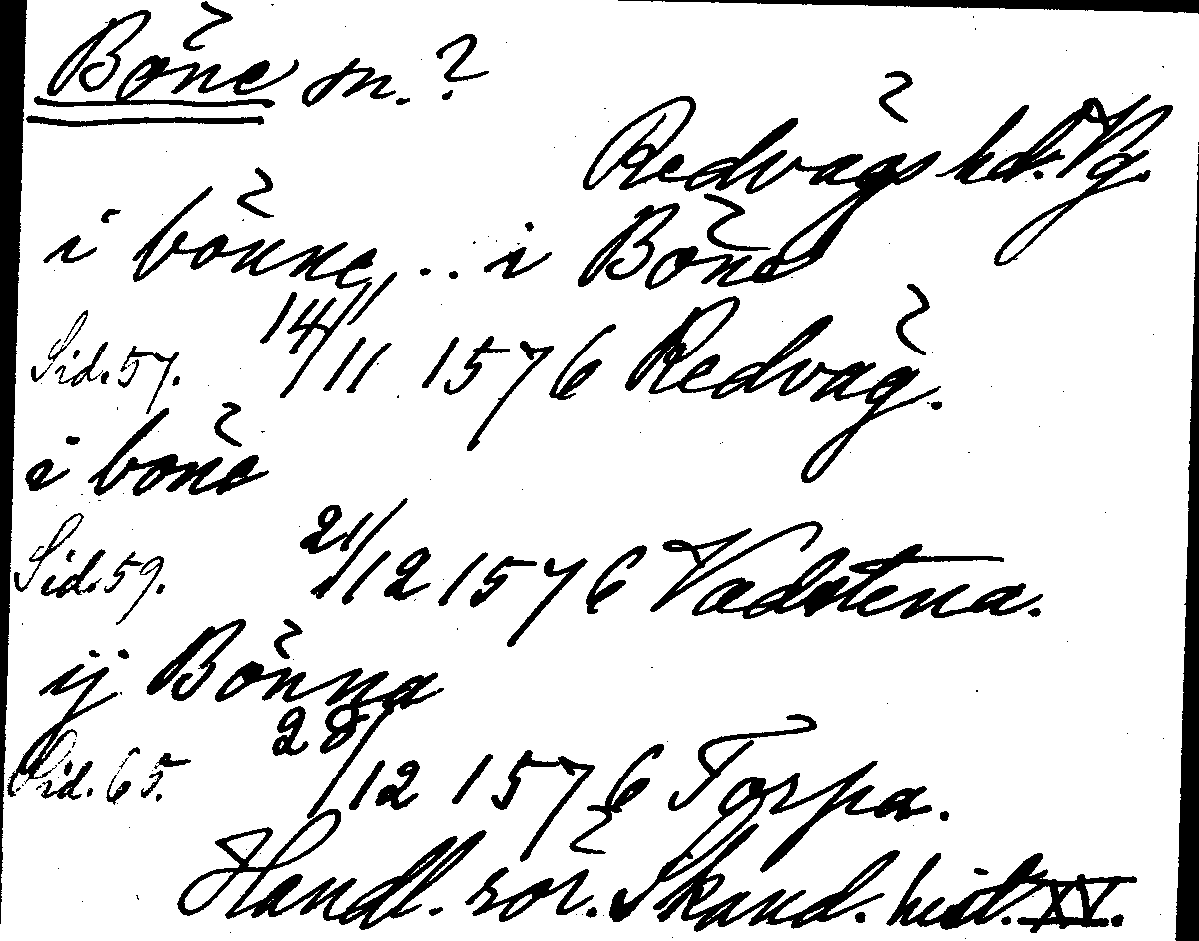 Böne sn.?
Redvägs hd. Vg.
i bönne, .. i Böne
Sid. 57. 14/11 1576 Redväg.
i böne
Sid. 59. 21/12 1576 Vadstena.
ij Bönna
Sid. 65. 28/12 1576 Torpa.
Handl. rör. Skand. hist. XV.